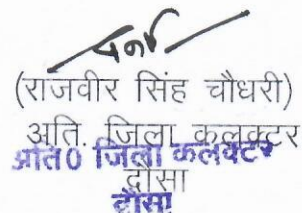 (राजवीर सिंह चौधरी)
अति. जिला कलक्टर
अति0 जिला कलक्टर
दौसा
दौसा